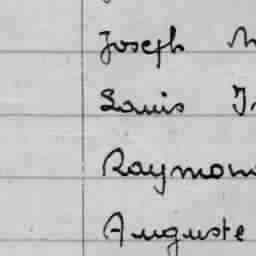 Joseph
Louis
Raymon
Auguste